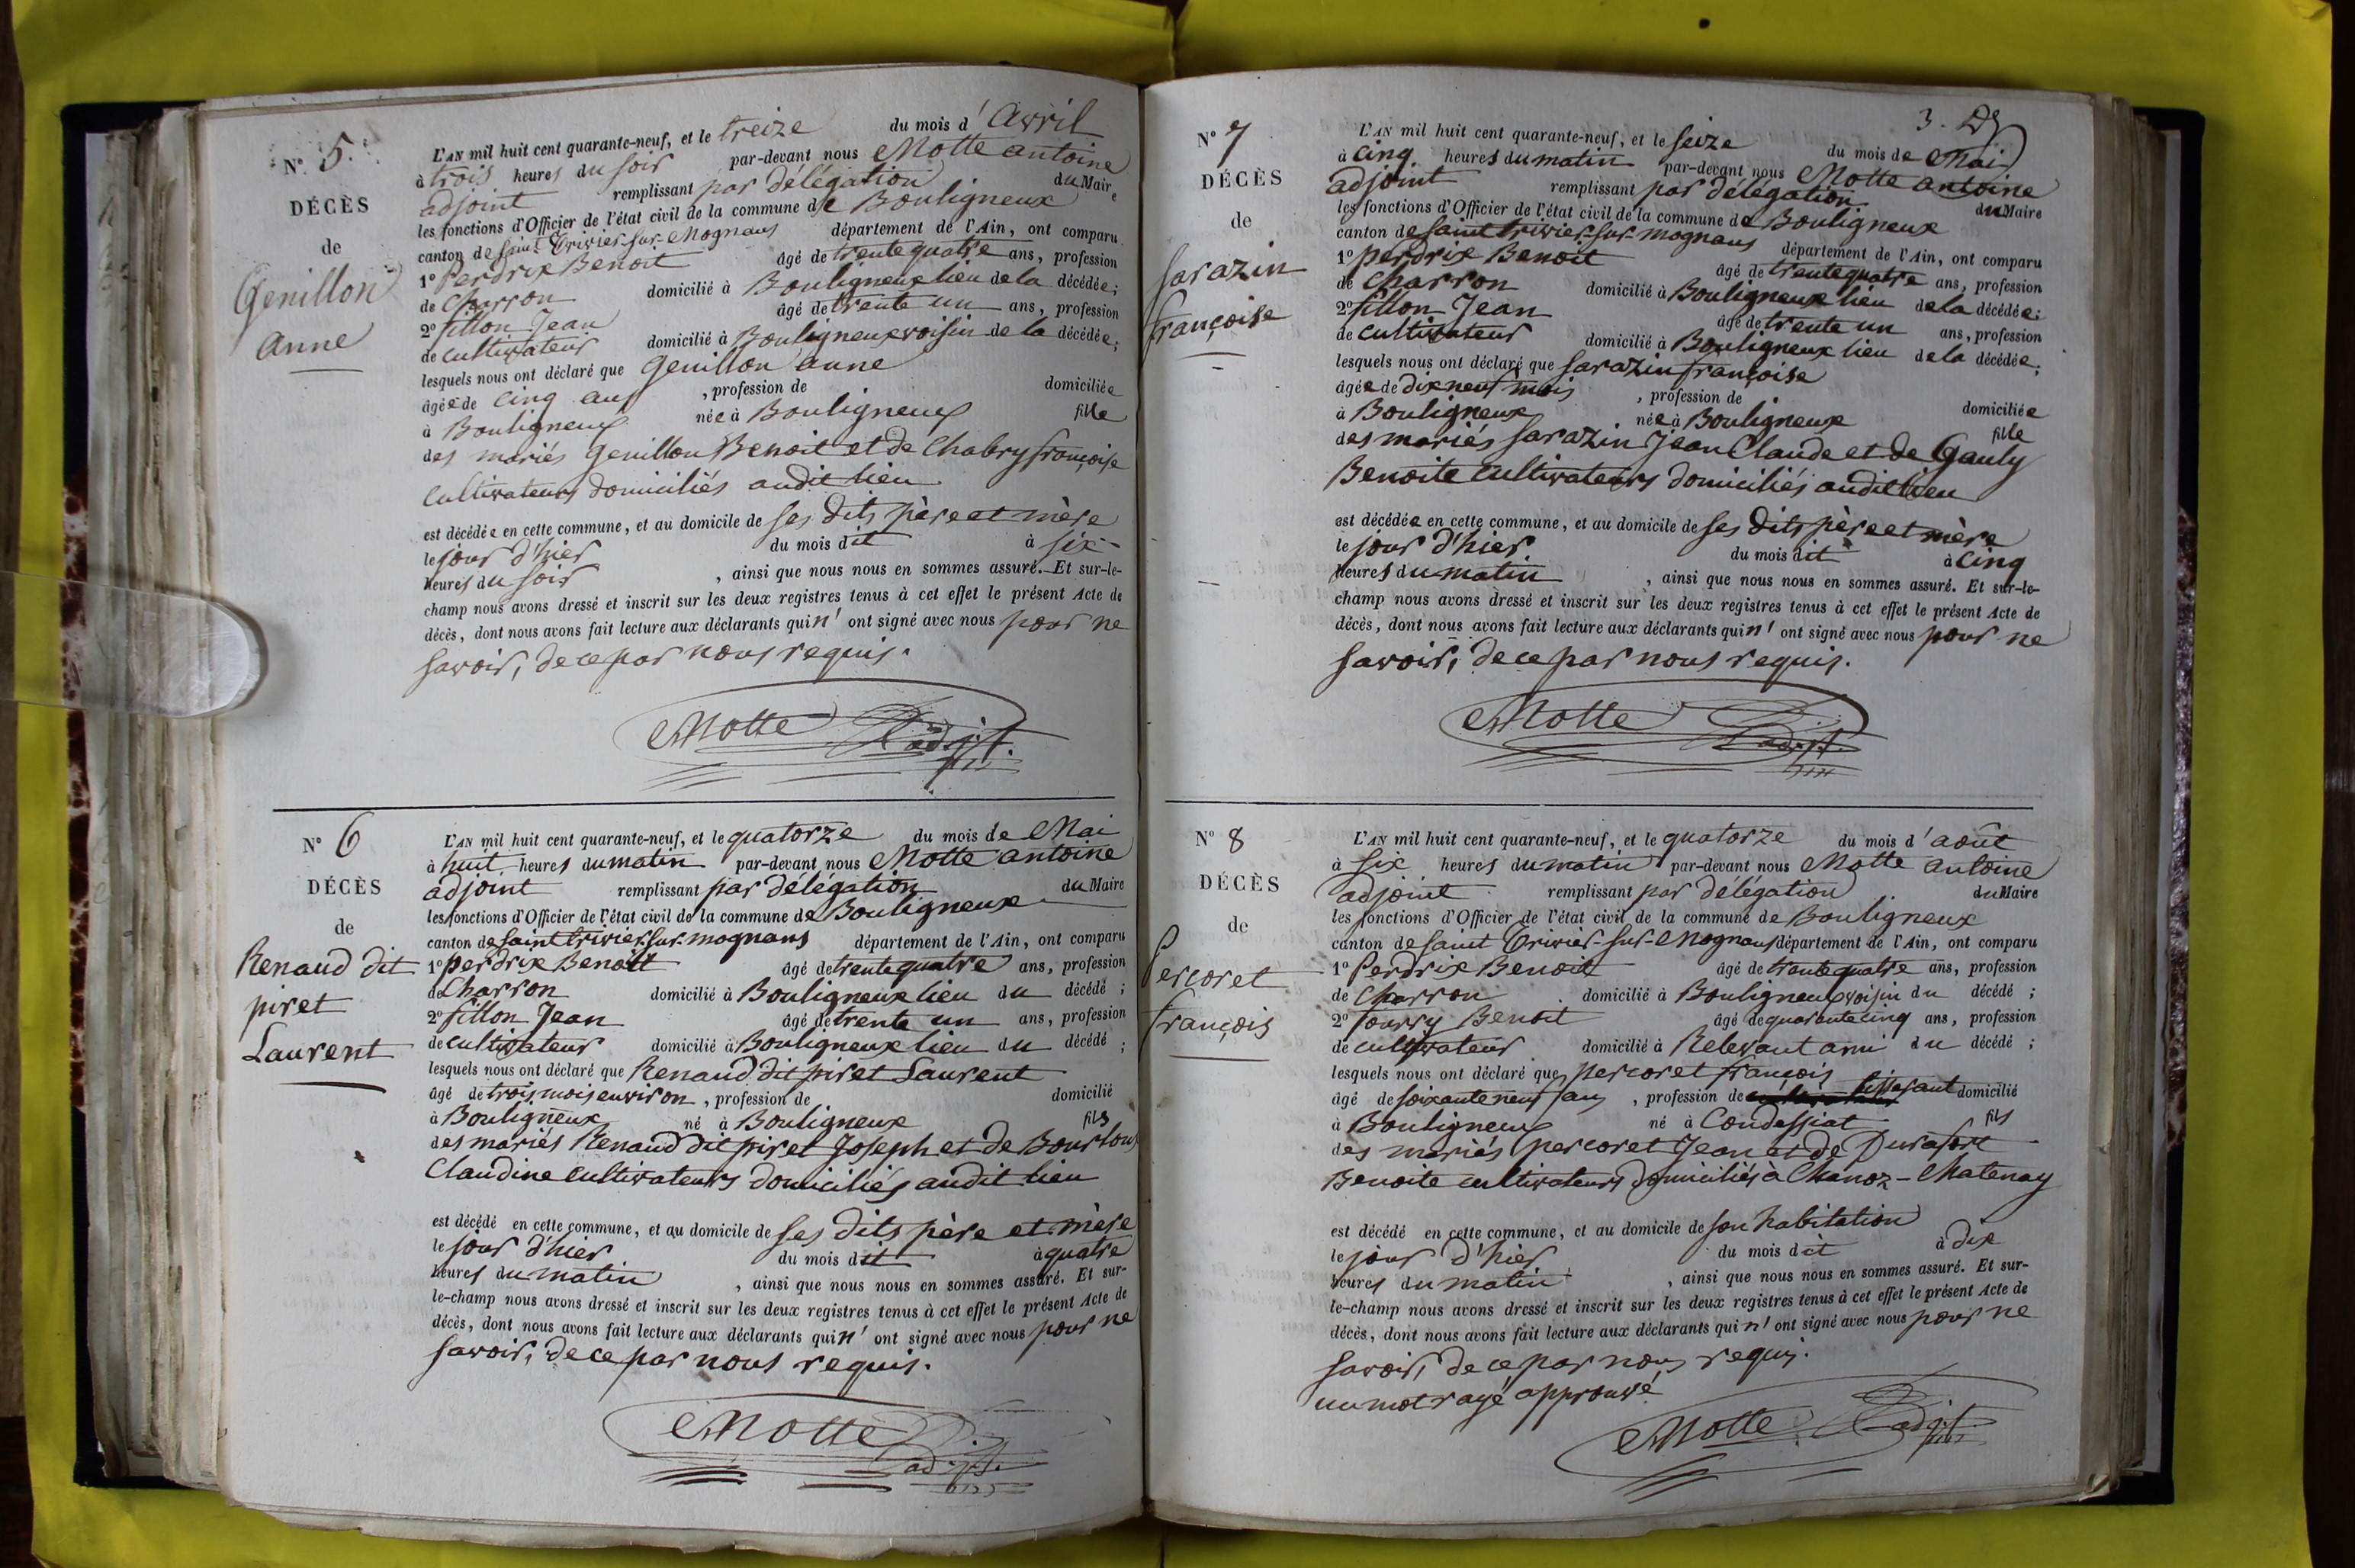 N° 5.
DÉCÈS
de
Genillon
Anne
L'AN mil huit cent quarante-neuf, et le treize du mois d' Avril
à trois heures du soir par-devant nous Motte antoine
adjoint remplissant par délégation du Maire
les fonctions d'Officier de l'état civil de la commune de Bouligneux
canton de Saint Trivier-sur-Mognans département de l'Ain, ont comparu
1° Perdrix Benoit âgé de trente quatre ans, profession
de Charron domicilié à Bouligneux lieu de la décédée;
2° fillon Jean âgé de trente un ans, profession
de cultivateur domicilié à Bouligneux voisin de la décédée;
lesquels nous ont déclaré que Genillon anne
âgée de cinq ans , profession de domiciliée
à Bouligneux née à Bouligneux fille
des mariés Genillon Benoit et de Chabry françoise
cultivateurs domiciliés audit lieu
est décédée en cette commune, et au domicile de ses dits père et mère
le jour d'hier du mois dit à six
heures du soir , ainsi que nous nous en sommes assuré. Et sur-le-
champ nous avons dressé et inscrit sur les deux registres tenus à cet effet le présent Acte de
décès, dont nous avons fait lecture aux déclarants qui n' ont signé avec nous pour ne
savoir, de ce par nous requis.
Motte adjt.
N° 6
DÉCÈS
de
Renaud dit
piret
Laurent
L'AN mil huit cent quarante-neuf, et le quatorze du mois de Mai
à huit heures du matin par-devant nous Motte antoine
adjoint remplissant par délégation du Maire
les fonctions d'Officier de l'état civil de la commune de Bouligneux
canton de Saint trivier-sur-mognans département de l'Ain, ont comparu
1° perdrix Benoit âgé de trente quatre ans, profession
de Charron domicilié à Bouligneux lieu du décédé ;
2° fillon Jean âgé de trente un ans, profession
de cultivateur domicilié à Bouligneux lieu du décédé ;
lesquels nous ont déclaré que Renaud dit piret Laurent
âgé de trois mois environ , profession de domicilié
à Bouligneux né à Bouligneux fils
des mariés Renaud dit piret Joseph et de Bourlous
Claudine cultivateurs domiciliés audit lieu
est décédé en cette commune, et au domicile de ses dits père et mère
le jour d'hier du mois dit à quatre
heures du matin , ainsi que nous nous en sommes assuré. Et sur-
le-champ nous avons dressé et inscrit sur les deux registres tenus à cet effet le présent Acte de
décès, dont nous avons fait lecture aux déclarants qui n' ont signé avec nous pour ne
savoir, de ce par nous requis.
Motte adjt.
3.
N° 7
DÉCÈS
de
Sarazin
françoise
L'AN mil huit cent quarante-neuf, et le seize du mois de Mai
à cinq heures du matin par-devant nous Motte antoine
adjoint remplissant par délégation du Maire
les fonctions d'Officier de l'état civil de la commune de Bouligneux
canton de Saint trivier-sur-mognans département de l'Ain, ont comparu
1° perdrix Benoit âgé de trente quatre ans, profession
de Charron domicilié à Bouligneux lieu de la décédée;
2° fillon Jean âgé de trente un ans, profession
de cultivateur domicilié à Bouligneux lieu de la décédée;
lesquels nous ont déclaré que Sarazin françoise
âgée de dix neuf mois , profession de domiciliée
à Bouligneux née à Bouligneux fille
des mariés Sarazin Jean Claude et de Gauly
Benoite cultivateurs domiciliés audit lieu
est décédée en cette commune, et au domicile de ses dits père et mère
le jour d'hier du mois dit à cinq
heures du matin , ainsi que nous nous en sommes assuré. Et sur-le-
champ nous avons dressé et inscrit sur les deux registres tenus à cet effet le présent Acte de
décès, dont nous avons fait lecture aux déclarants qui n' ont signé avec nous pour ne
savoir, de ce par nous requis.
Motte adjt.
N° 8
DÉCÈS
de
Percoret
françois
L'AN mil huit cent quarante-neuf, et le quatorze du mois d' août
à six heures du matin par-devant nous Motte antoine
adjoint remplissant par délégation du Maire
les fonctions d'Officier de l'état civil de la commune de Bouligneux
canton de Saint Trivier-sur-Mognans département de l'Ain, ont comparu
1° Perdrix Benoit âgé de trente quatre ans, profession
de Charron domicilié à Bouligneux voisin du décédé ;
2° Tourry Benoit âgé de quarante cinq ans, profession
de cultivateur domicilié à Relevant ami du décédé ;
lesquels nous ont déclaré que percoret françois
âgé de soixante neuf ans , profession de tisserant domicilié
à Bouligneux né à Condessiat fils
des mariés percoret Jean et de Durafort
Benoite cultivateurs domiciliés à Chanoz-Chatenay
est décédé en cette commune, et au domicile de son habitation
le jour d'hier du mois dit à dix
heures du matin , ainsi que nous nous en sommes assuré. Et sur-
le-champ nous avons dressé et inscrit sur les deux registres tenus à cet effet le présent Acte de
décès, dont nous avons fait lecture aux déclarants qui n' ont signé avec nous pour ne
savoir, de ce par nous requis.
un mot rayé approuvé
Motte adjt